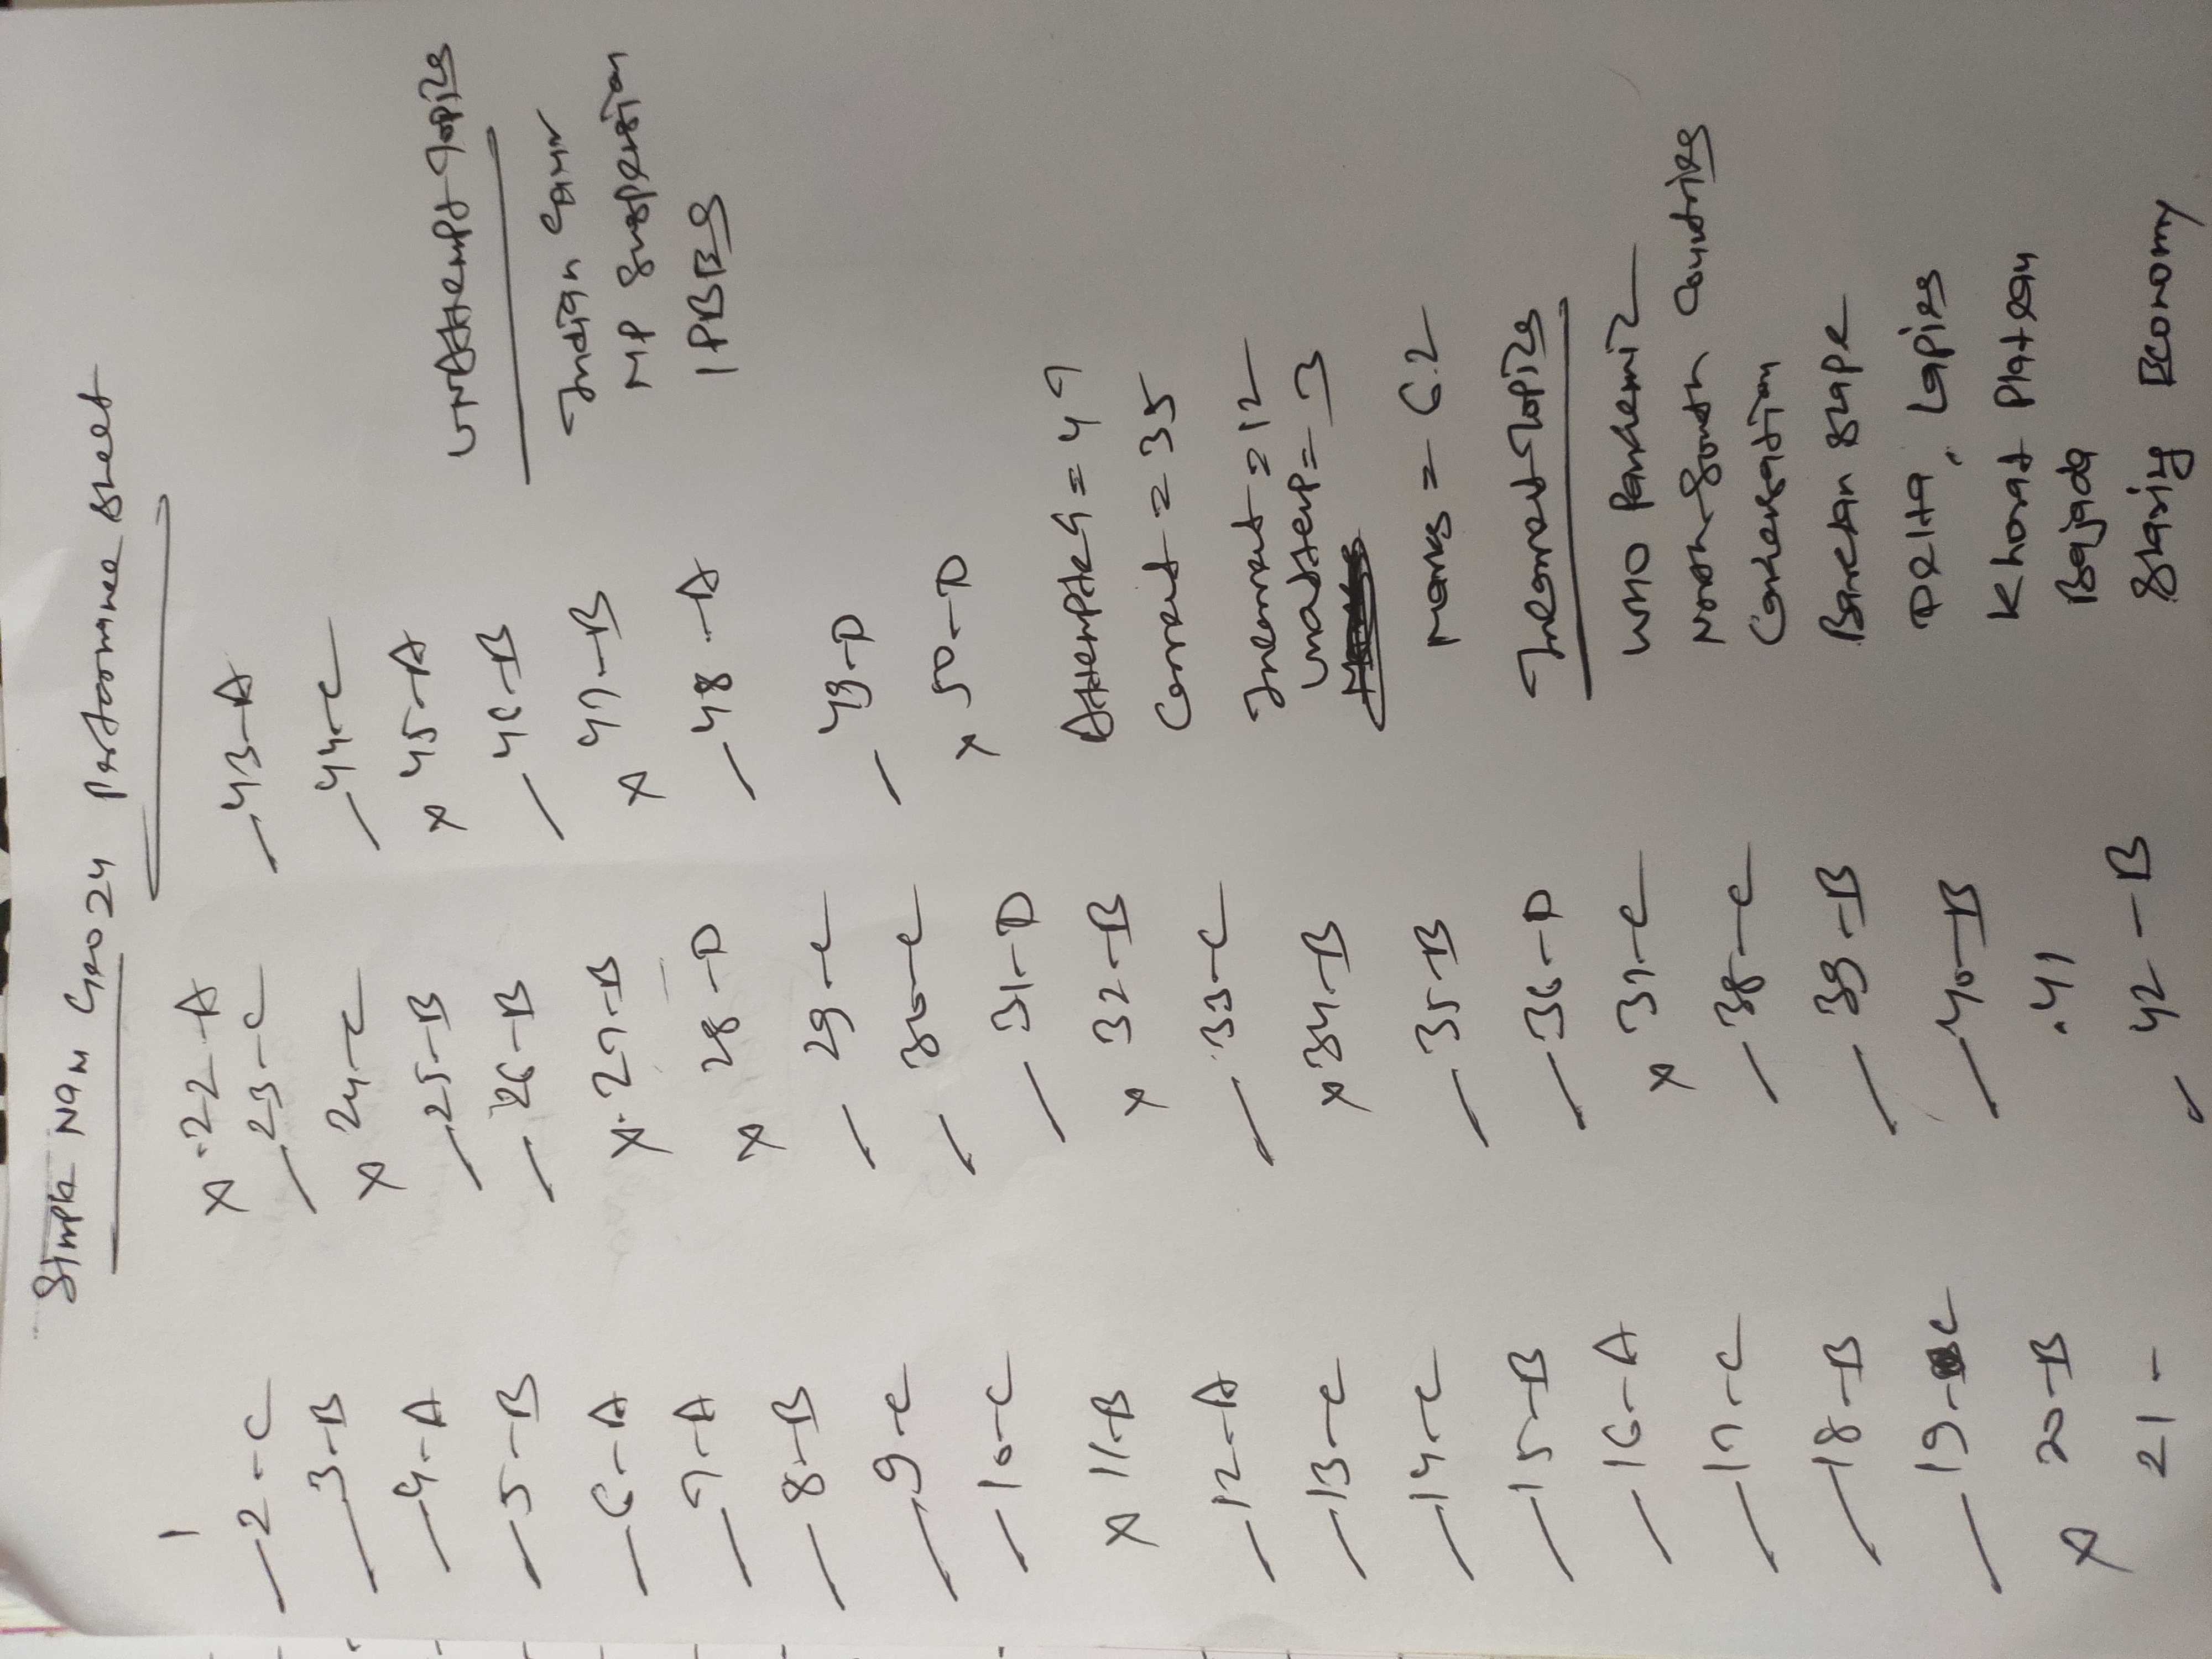 Simple Nam Geo 24 Performance Sheet
1
— 2 - C
— 3 - B
— 4 - A
— 5 - B
— 6 - A
— 7 - A
— 8 - B
— 9 - C
— 10 - C
x 11 - B
— 12 - A
— 13 - C
— 14 - C
— 15 - B
— 16 - A
— 17 - C
— 18 - B
— 19 - C
x 20 - B
21 -
x 22 - A
— 23 - C
x 24 - C
— 25 - B
— 26 - B
x 27 - B
x 28 - D
— 29 - C
— 30 - C
— 31 - D
x 32 - B
— 33 - C
x 34 - B
— 35 - B
— 36 - D
x 37 - C
— 38 - C
— 39 - B
— 40 - B
41
✓ 42 - B
— 43 - A
— 44 - C
x 45 - A
— 46 - B
x 47 - B
— 48 - A
— 49 - D
x 50 - D
Attempted = 47
Correct = 35
Incorrect = 12
Unattemp = 3
Marks = 62
Incorrect Topics
WHO Pandemic
North-South Countries
Barchan Shape
Delta, Lapies
Khorat Plateau
Bajada
Sharing Economy
UnAttempt Topics
MP Suspension
IPBES